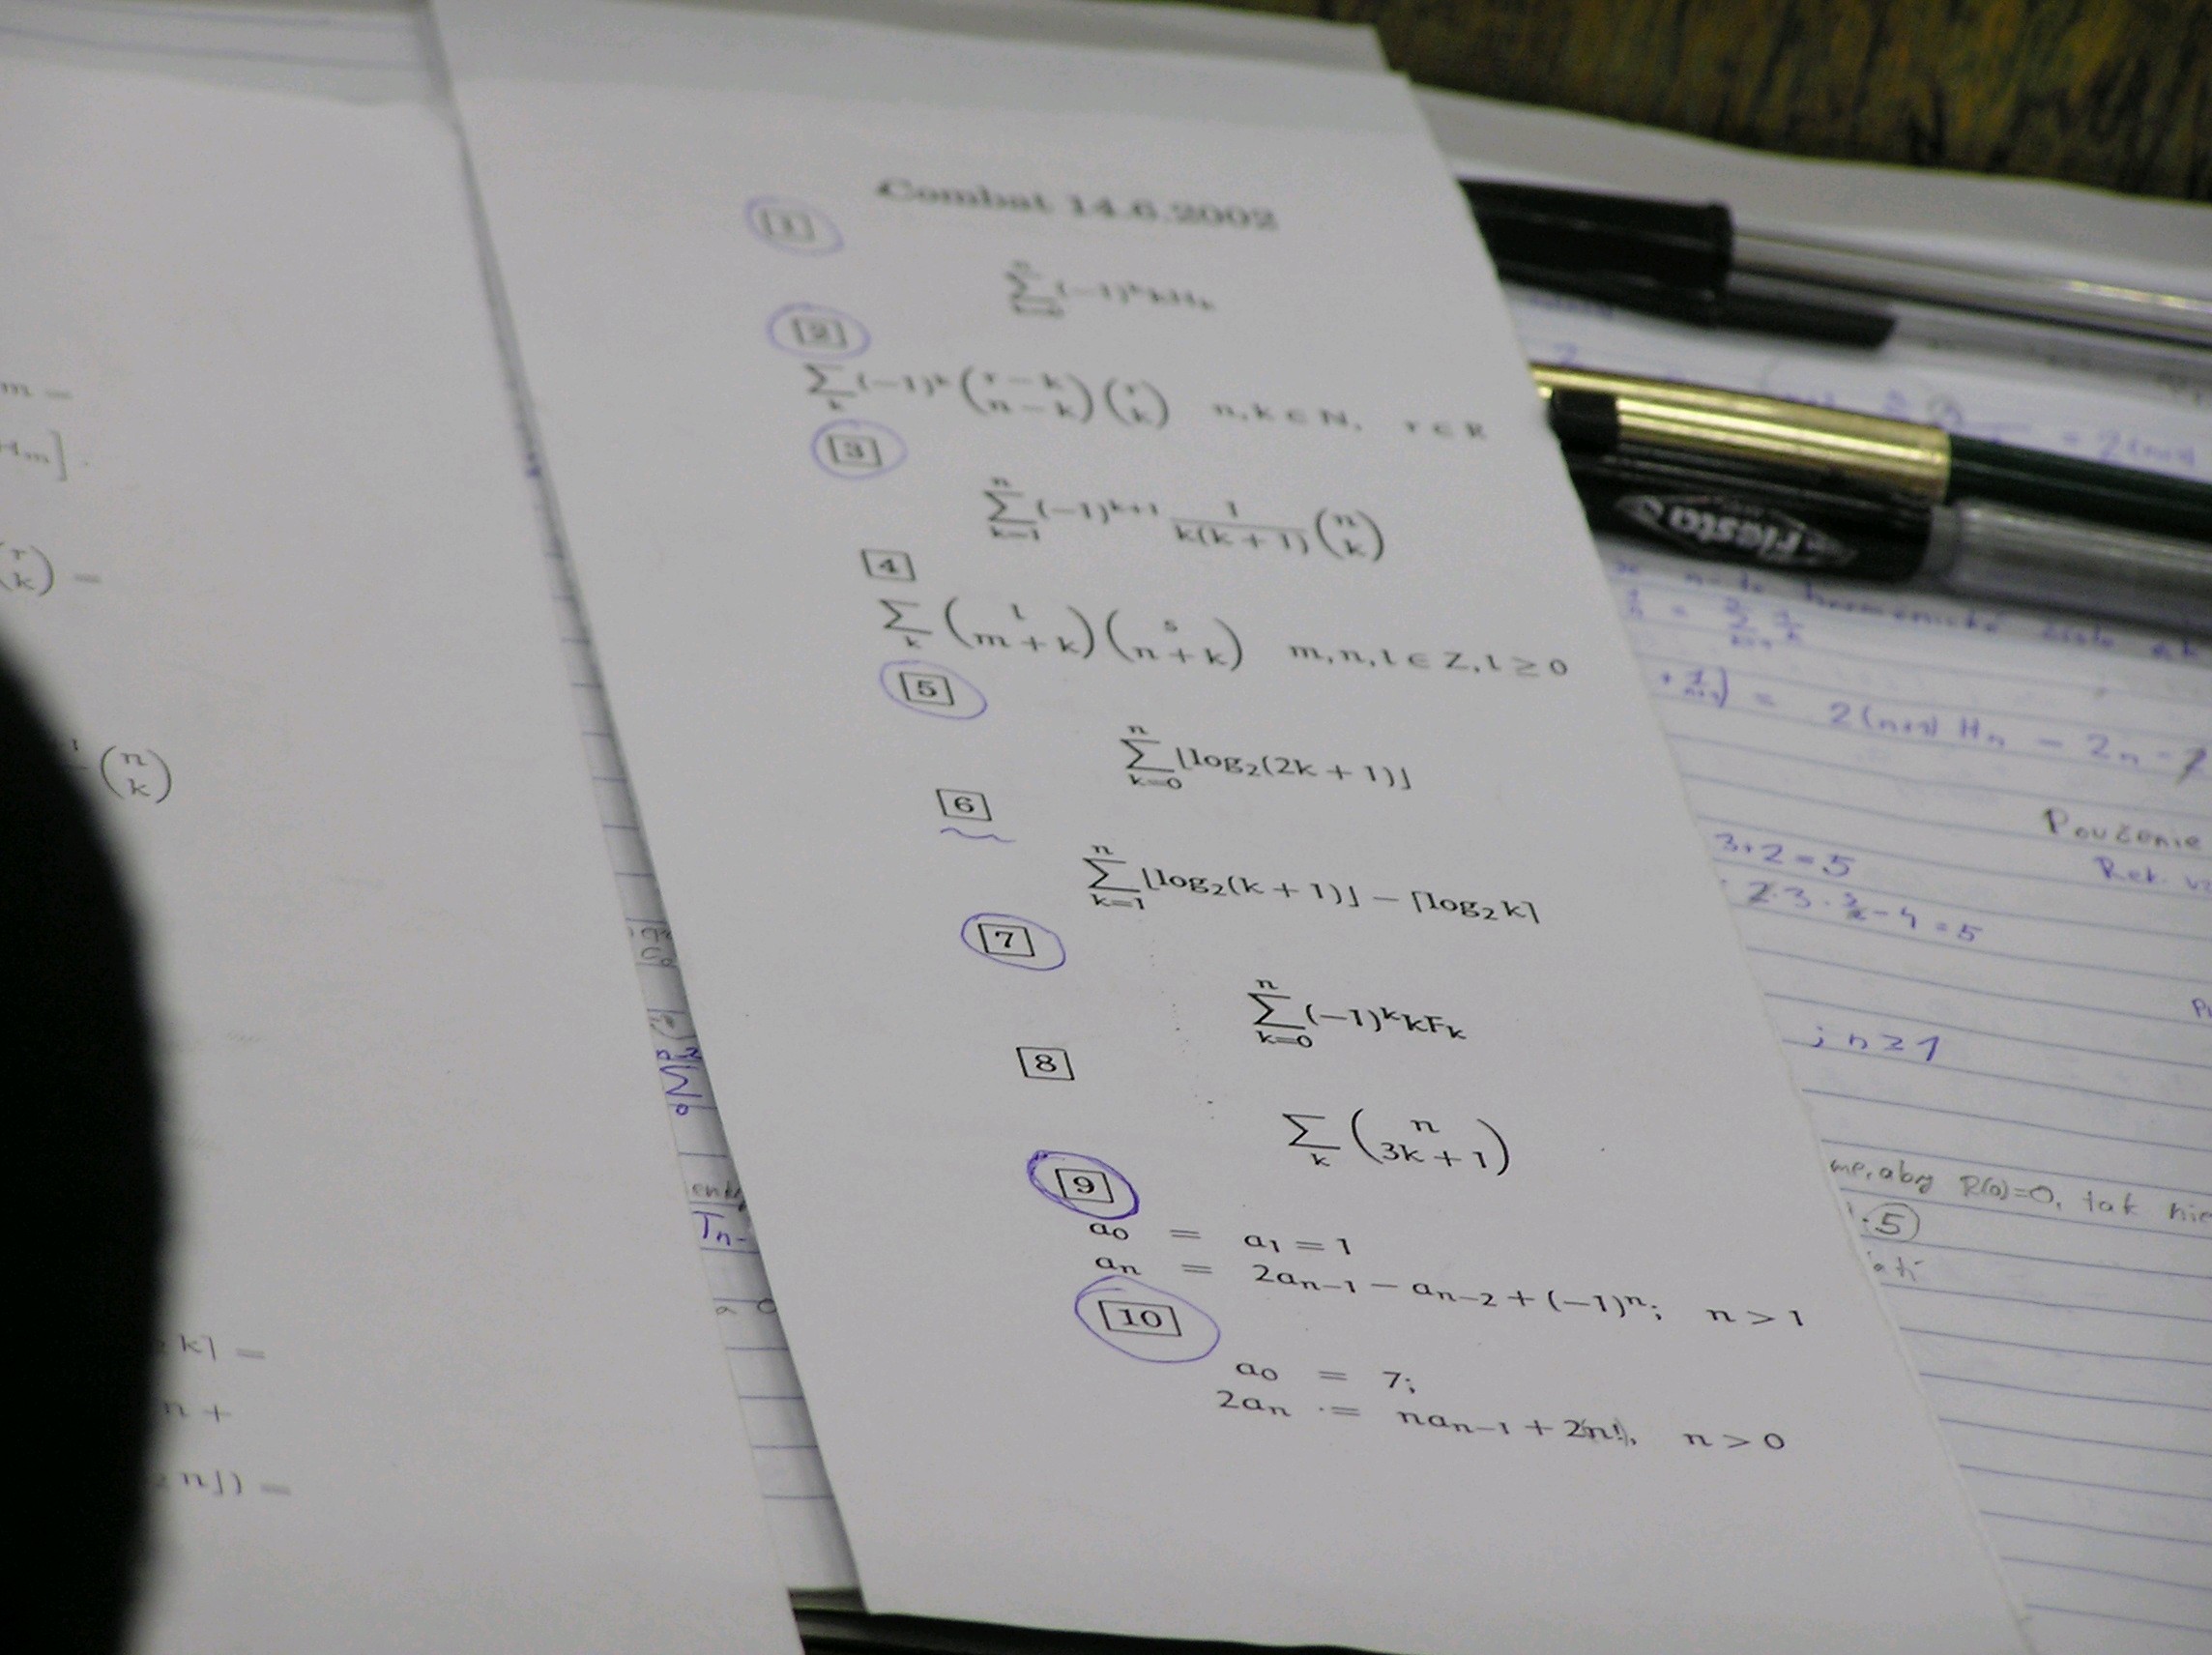 Combat 14.6.2002
1
\sum_{k=0}^{n} (-1)^k k H_k
2
\sum_k (-1)^k \binom{r-k}{n-k} \binom{r}{k}   n, k ∈ N,   r ∈ R
3
\sum_{k=1}^{n} (-1)^{k+1} \frac{1}{k(k+1)} \binom{n}{k}
4
\sum_k \binom{l}{m+k} \binom{s}{n+k}   m, n, l ∈ Z, l ≥ 0
5
\sum_{k=0}^{n} ⌊log_2(2k + 1)⌋
6
\sum_{k=1}^{n} ⌊log_2(k + 1)⌋ − ⌈log_2 k⌉
7
\sum_{k=0}^{n} (-1)^k k F_k
8
\sum_k \binom{n}{3k+1}
9
a_0 = a_1 = 1
a_n = 2a_{n−1} − a_{n−2} + (−1)^n;   n > 1
10
a_0 = 7;
2a_n = na_{n−1} + 2n!,   n > 0
m −
H_m].
\binom{r}{k} =
\binom{n}{k}
k⌉ =
n +
n⌋) =
T_n-
Fiesta
2(n+1) H_n − 2n -
Poučenie
3+2=5
2·3· - 4 = 5
; n ≥ 1
aby R(0)=0, tak nie
5